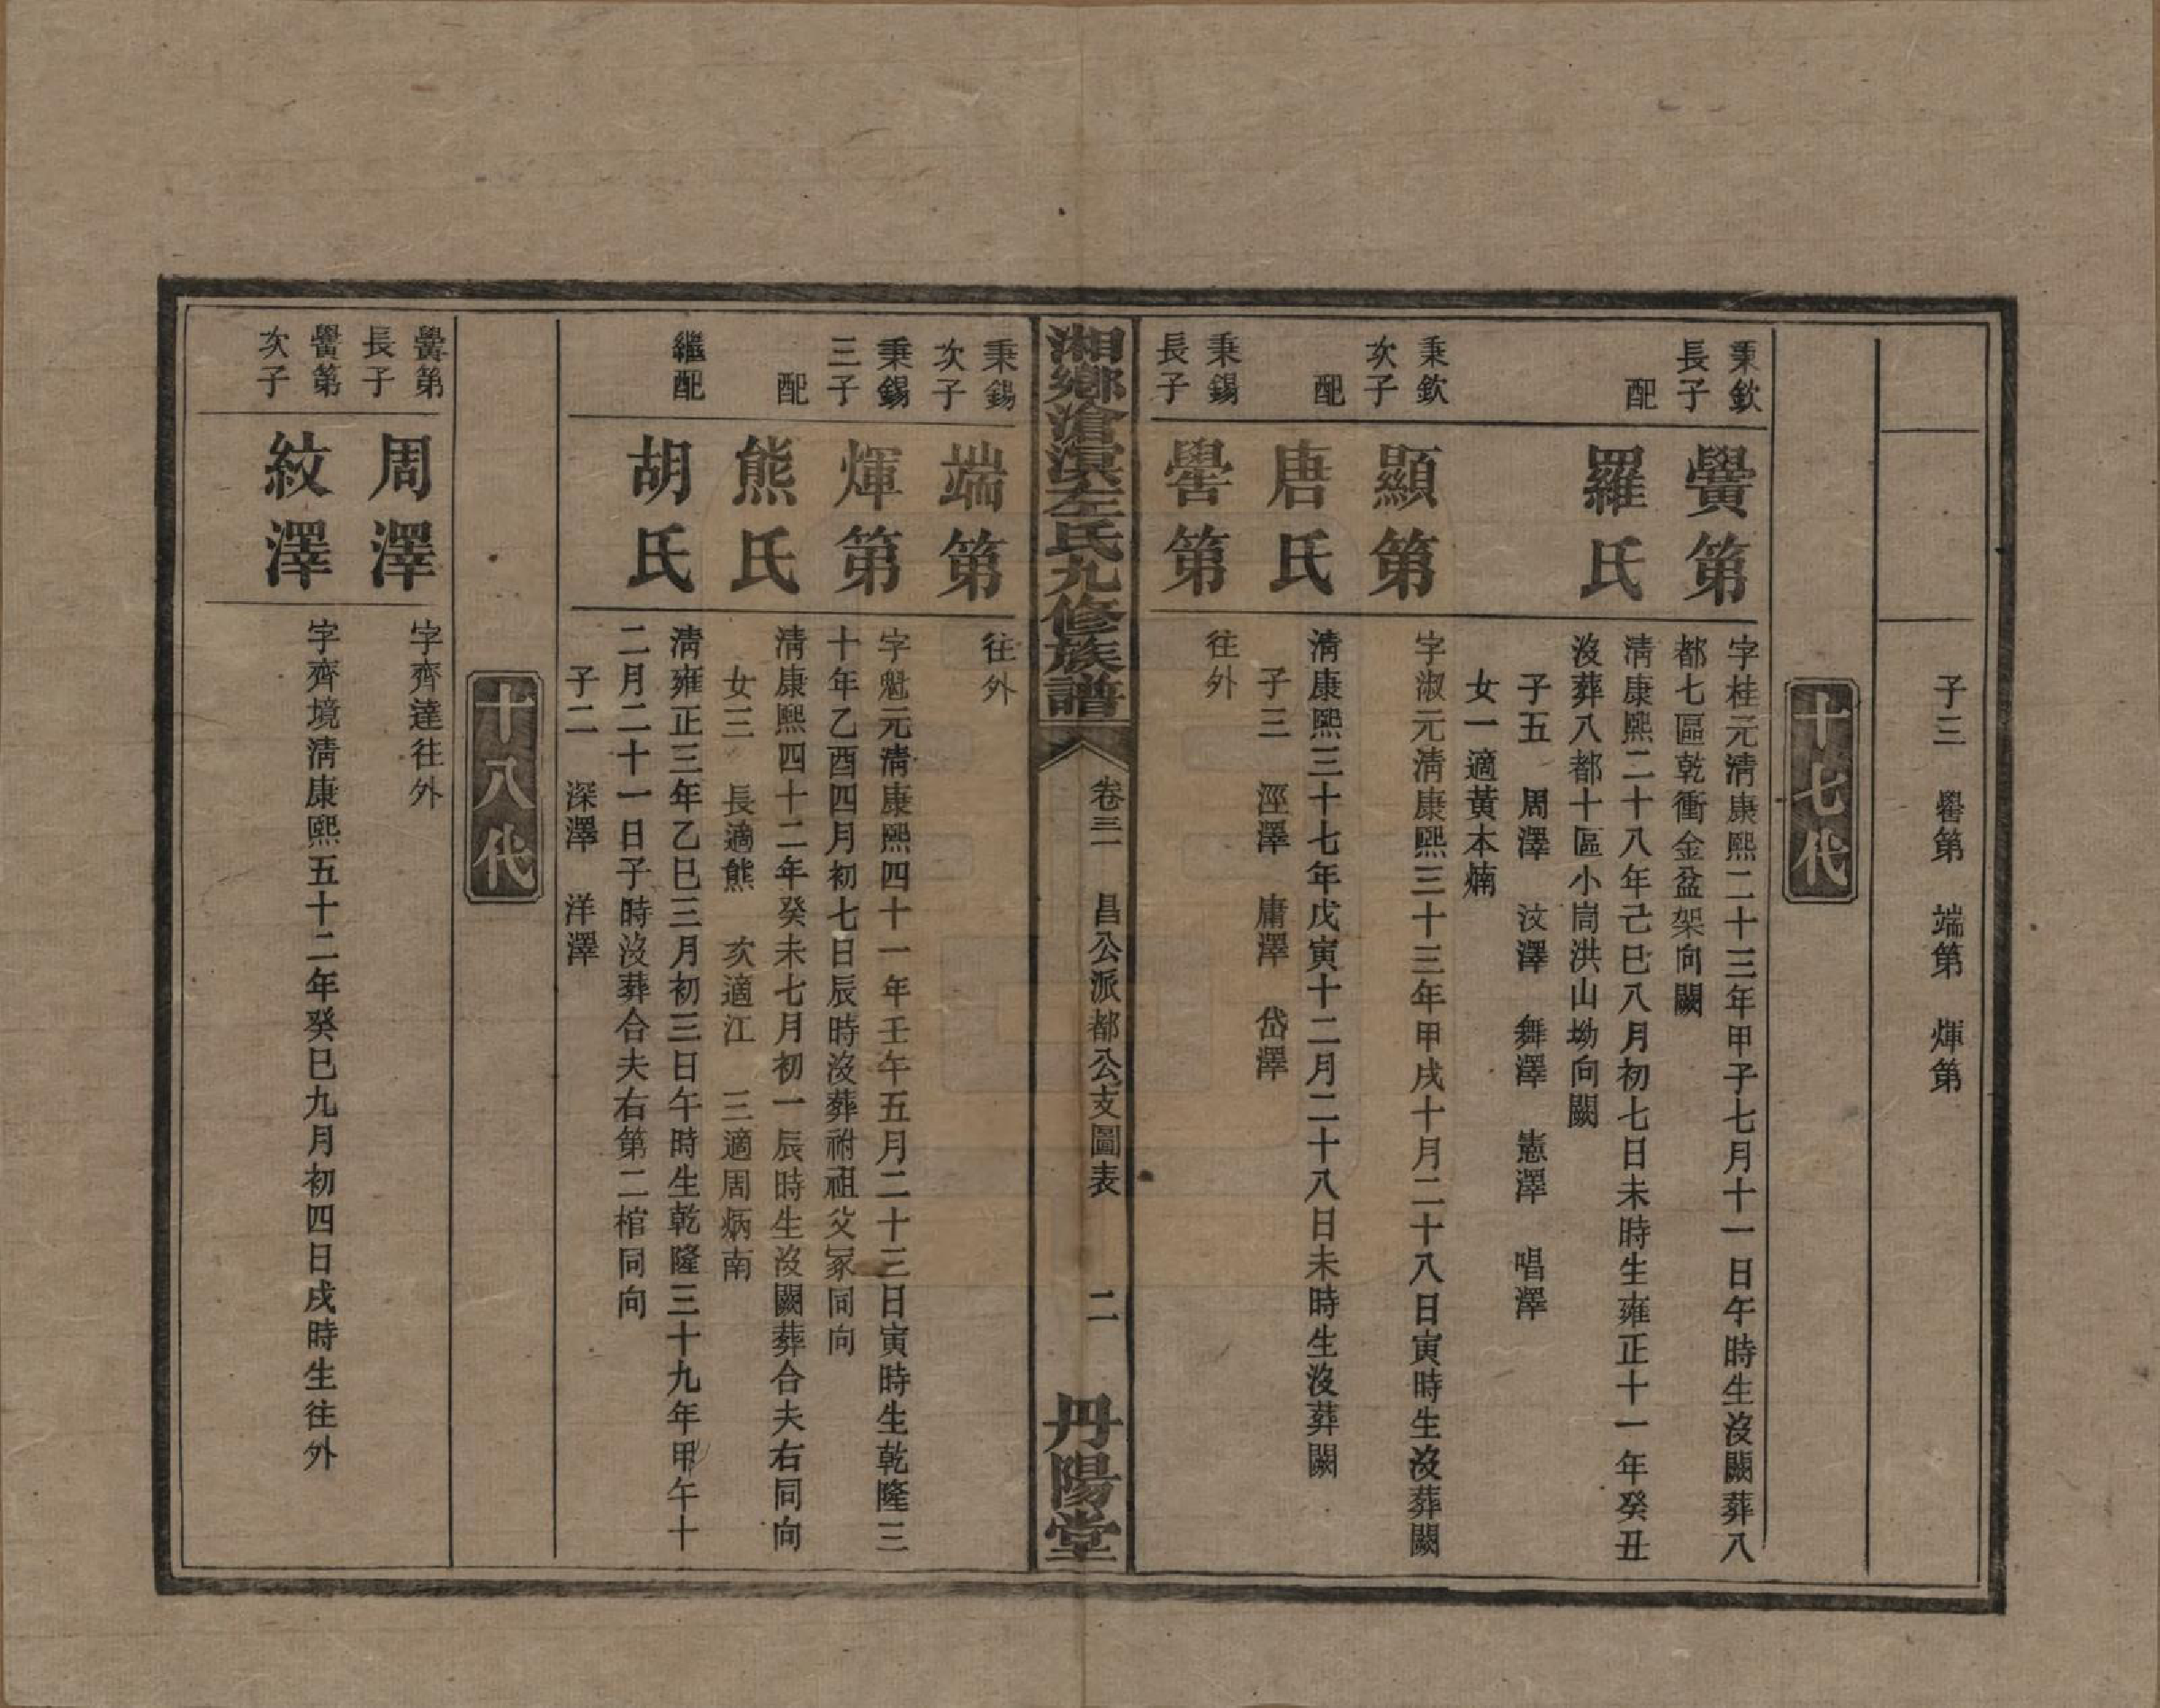 子三　嚳第　端第　煇第
十七代
秉欽
長子
黌第
字桂元清康熙二十三年甲子七月十一日午時生沒闕葬八
都七區乾衝金盆架向闕
配
羅氏
清康熙二十八年己巳八月初七日未時生雍正十一年癸丑
沒葬八都十區小崗洪山坳向闕
子五　周澤　汶澤　舞澤　憲澤　唱澤
女一適黃本煵
秉欽
次子
顯第
字淑元清康熙三十三年甲戌十月二十八日寅時生沒葬闕
配
唐氏
清康熙三十七年戊寅十二月二十八日未時生沒葬闕
子三　涇澤　庸澤　岱澤
秉錫
長子
嚳第
往外
湘鄉滄溟左氏九修族譜
卷三　昌公派都公支圖表　二
丹陽堂
秉錫
次子
端第
往外
秉錫
三子
煇第
字魁元清康熙四十一年壬午五月二十三日寅時生乾隆三
十年乙酉四月初七日辰時沒葬祔祖父冢同向
配
熊氏
清康熙四十二年癸未七月初一辰時生沒闕葬合夫右同向
女三　長適熊　次適江　三適周炳南
繼配
胡氏
清雍正三年乙巳三月初三日午時生乾隆三十九年甲午十
二月二十一日子時沒葬合夫右第二棺同向
子二　深澤　洋澤
十八代
黌第
長子
周澤
字齊達往外
黌第
次子
紋澤
字齊境清康熙五十二年癸巳九月初四日戌時生往外